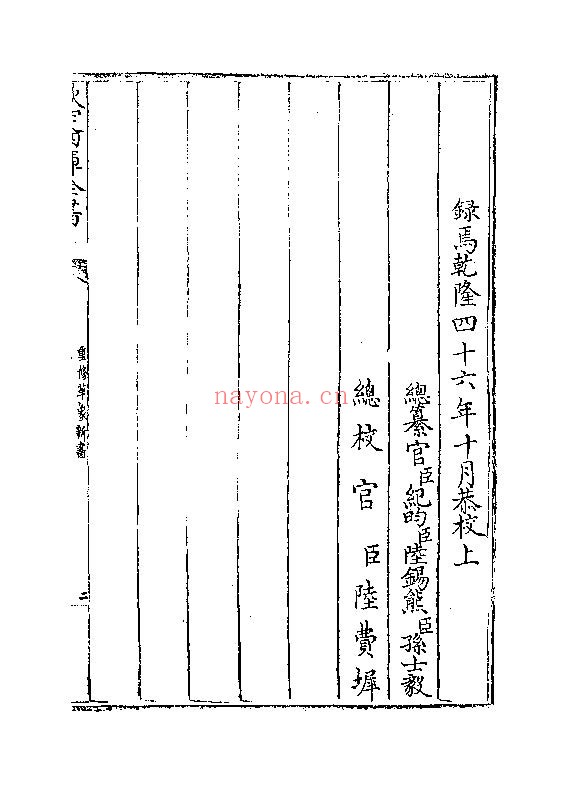 録焉乾隆四十六年十月恭校上
總纂官臣紀昀臣陸錫熊臣孫士毅
總校官臣陸費墀
欽定四庫全書
重修革象新書
二
nayona.cn